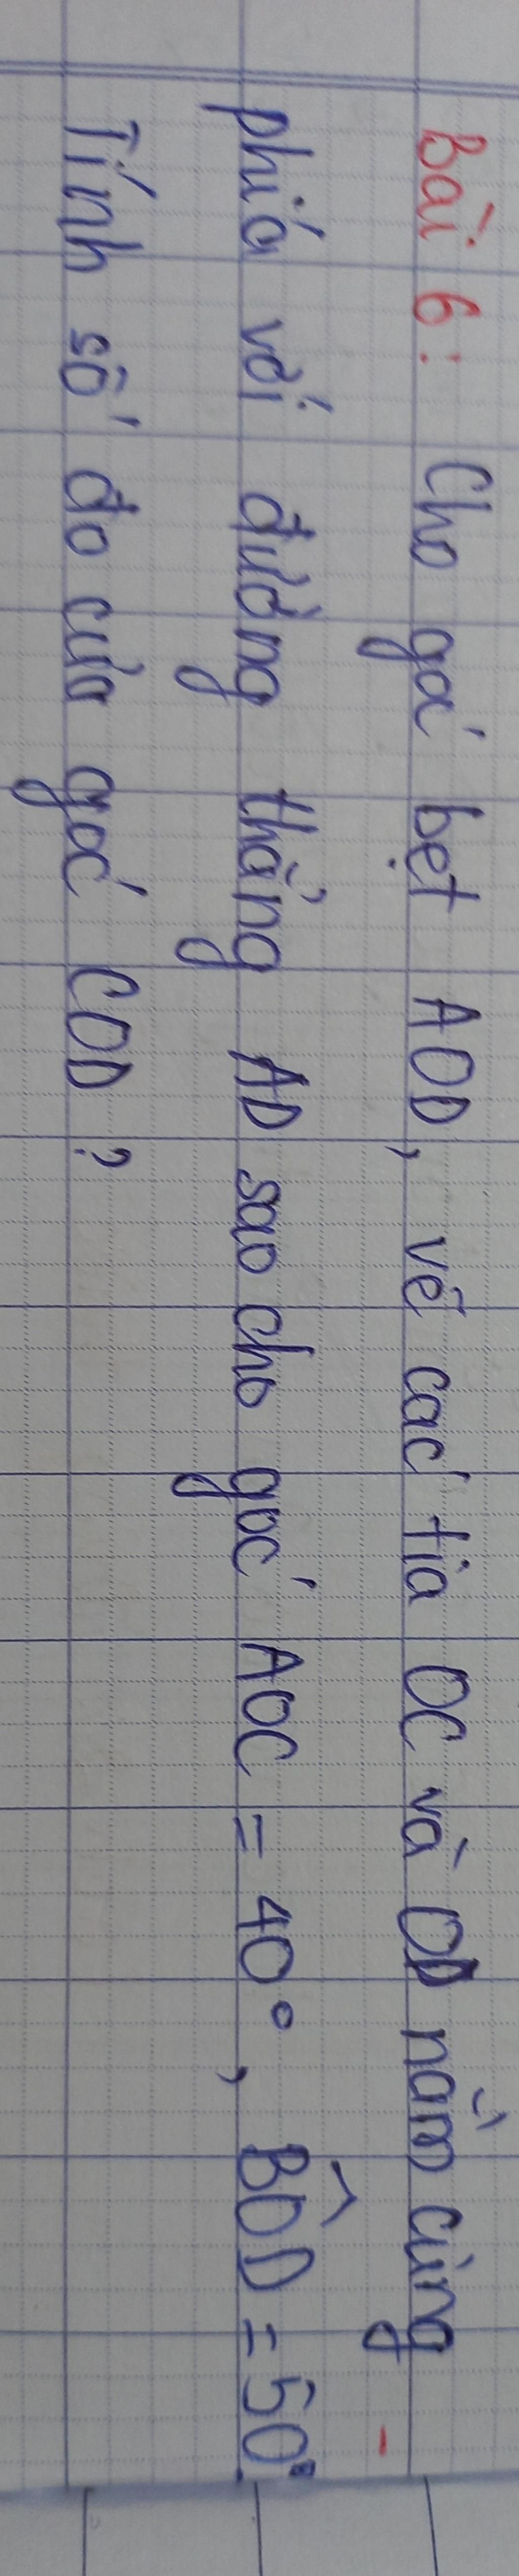 Bài 6: Cho gá bẹt AOD, vẽ các tia OC và OD nằm cùng -
phía với đường thẳng AD sao cho góc AOC = 40°, BÔD = 50°.
Tính số đo của góc COD?